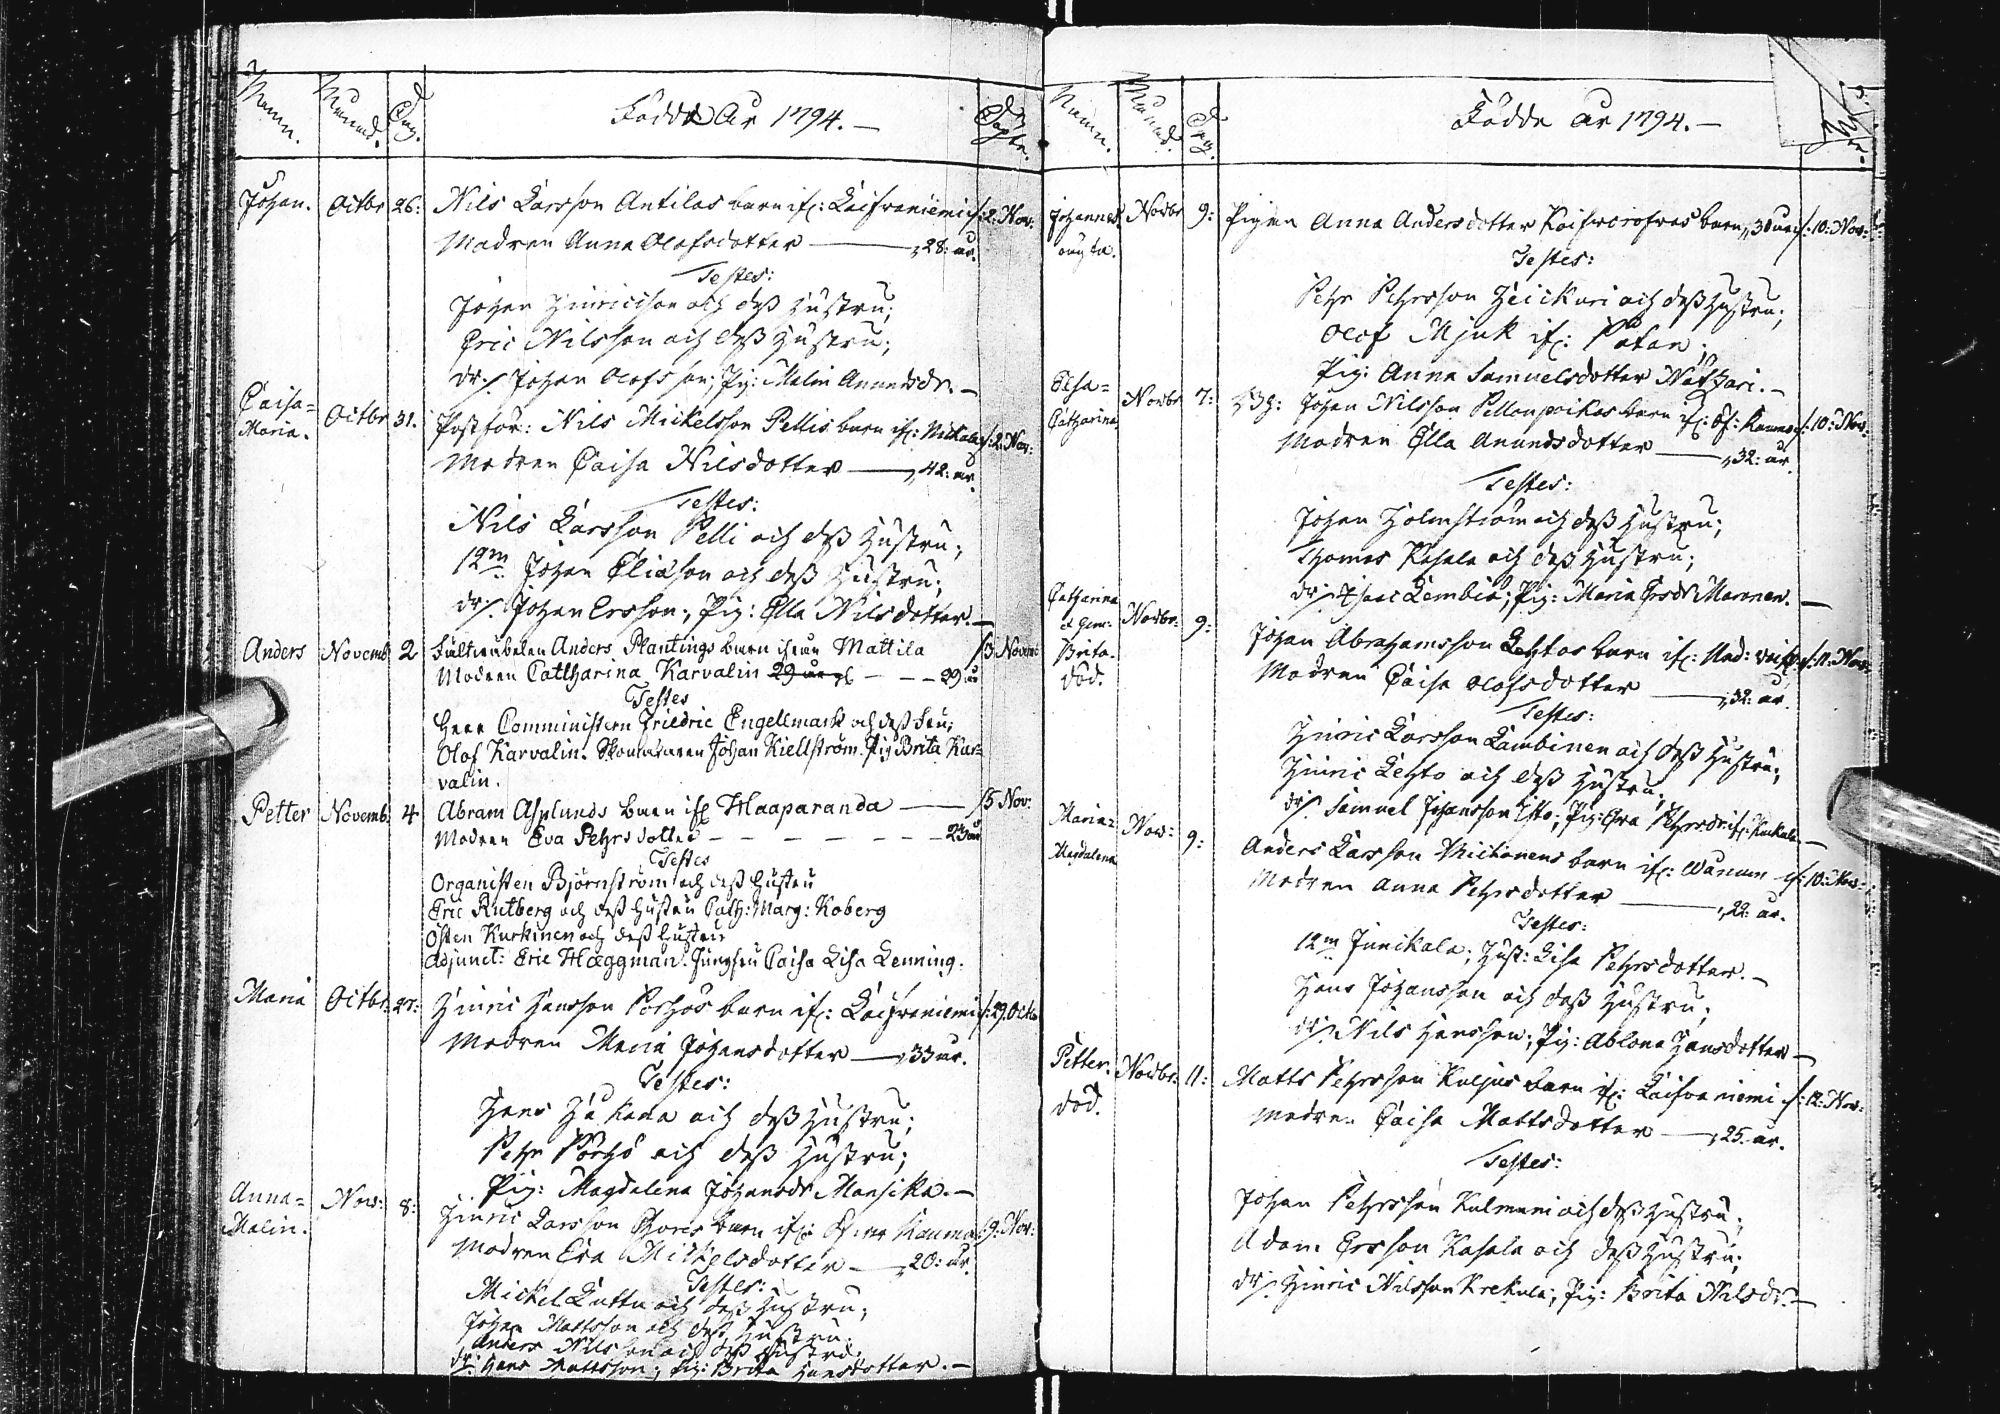 Namn. Månad. Dag. Födde År 1794. — Döpte.
Johan. Octbr 26: Nils Larsson Antilas barn if: Laifvaniemi /: 2: Nov:
Modren Anna Olofsdotter — „28: år.
Testes:
Johan Hinricsson och dess Hustru;
Eric Nilsson och dess Hustru;
dr/. Johan Olofsson; Pig: Malin Anundsdr. —
Caisa= Maria. Octbr 31. Postför: Nils Mickelsson Pellis barn if: Mickala /: 2: Nov:
Modren Caisa Nilsdotter — „42: år.
Testes:
Nils Larsson Pelli och dess Hustru;
12m Johan Eliæson och dess Hustru;
dr/. Johan Ersson; Pig: Ella Nilsdotter. —
Anders Novemb. 2 Anders Plantings barn ifrån Mattila /3 Novem:
Modren Cattharina Karvalin 29 år — — 29. år
Testes
Herr Comministern Friedric Engellmark och dess Fru;
Olof Karvalin. Johan Kiellström. Pig Brita Kar=
valin.
Petter Novemb. 4 Abram Asplunds barn if Haaparanda — /5 Nov:
Modren Eva Pehrsdotter — — — — — 23 år
Testes
Organisten Björnström och dess hustru
Eric Rutberg och dess hustru Cath: Marg: Koberg
Östen Kurkinen och dess hustru
Adjunct: Eric Hæggman. Jungfru Caisa Lisa Lenning.
Maria Octbr: 27: Hinric Hansson Pörhös barn if: Laifvaniemi /: 29. Octo
Modren Maria Johansdotter — „33 år.
Testes:
Hans Hukana och dess Hustru;
Pehr Pörhö och dess Hustru;
Pig: Magdalena Johansdr Mansika. —
Anna= Malin. Nov: 8: Hinric Larsson barn if: Kauma /: 9: Nov:
Modren Eva Mickelsdotter — „20: år.
Testes:
Mickel Luttu och dess Hustru;
Johan Mattsson och dess Hustru;
Anders Nilsson och dess Hustru;
dr/. Hans Mattsson; Pig: Brita Hansdotter. —
Namn. Månad. Dag. Födde År 1794. —
Johannes oägta. Novbr 9: Pigan Anna Andersdotter barn, „30 år /: 10: Nov:
Testes:
Pehr Pehrsson Heickuri och dess Hustru;
Olof Mjuk if: Patan;
Pig: Anna Samuelsdotter —
Elsa= Catharina Novbr 7: Johan Nilsson barn if: Öf: Kauma /: 10: Nov:
Modren Ella Anundsdotter — „32: år.
Testes:
Johan Holmström och dess Hustru;
Thomas Kasala och dess Hustru;
dr/. Isaac Lembiä; Pig: Maria Ersdr Maronen. —
Catharina et Gem: Brita. död. Novbr: 9: Johan Abrahamsson Lehtos barn if: /: 11: Nov:
Modren Caisa Olofsdotter — „32: år.
Testes:
Hinric Larsson Lambinen och dess Hustru;
Hinric Lehto och dess Hustru;
dr/. Samuel Johansson; Pig: Eva Pehrsdr if: Kuckula. —
Maria= Magdalena Nov: 9: Anders Larsson barn if: /: 10: Nov:
Modren Anna Pehrsdotter — „22: år.
Testes:
12m Junikala; Hust: Lisa Pehrsdotter. —
Hans Johansson och dess Hustru;
dr/. Nils Hansson; Pig: Ablona Hansdotter —
Petter. död. Novbr: 11: Matts Pehrsson Kuljus barn if: Laifvaniemi /: 12: Nov:
Modren Caisa Mattsdotter — „25: år.
Testes:
Johan Pehrsson Kulmuni och dess Hustru;
Adam Ersson Kasala och dess Hustru;
dr/. Hinric Nilsson Krekula; Pig: Brita Nilsdr. —